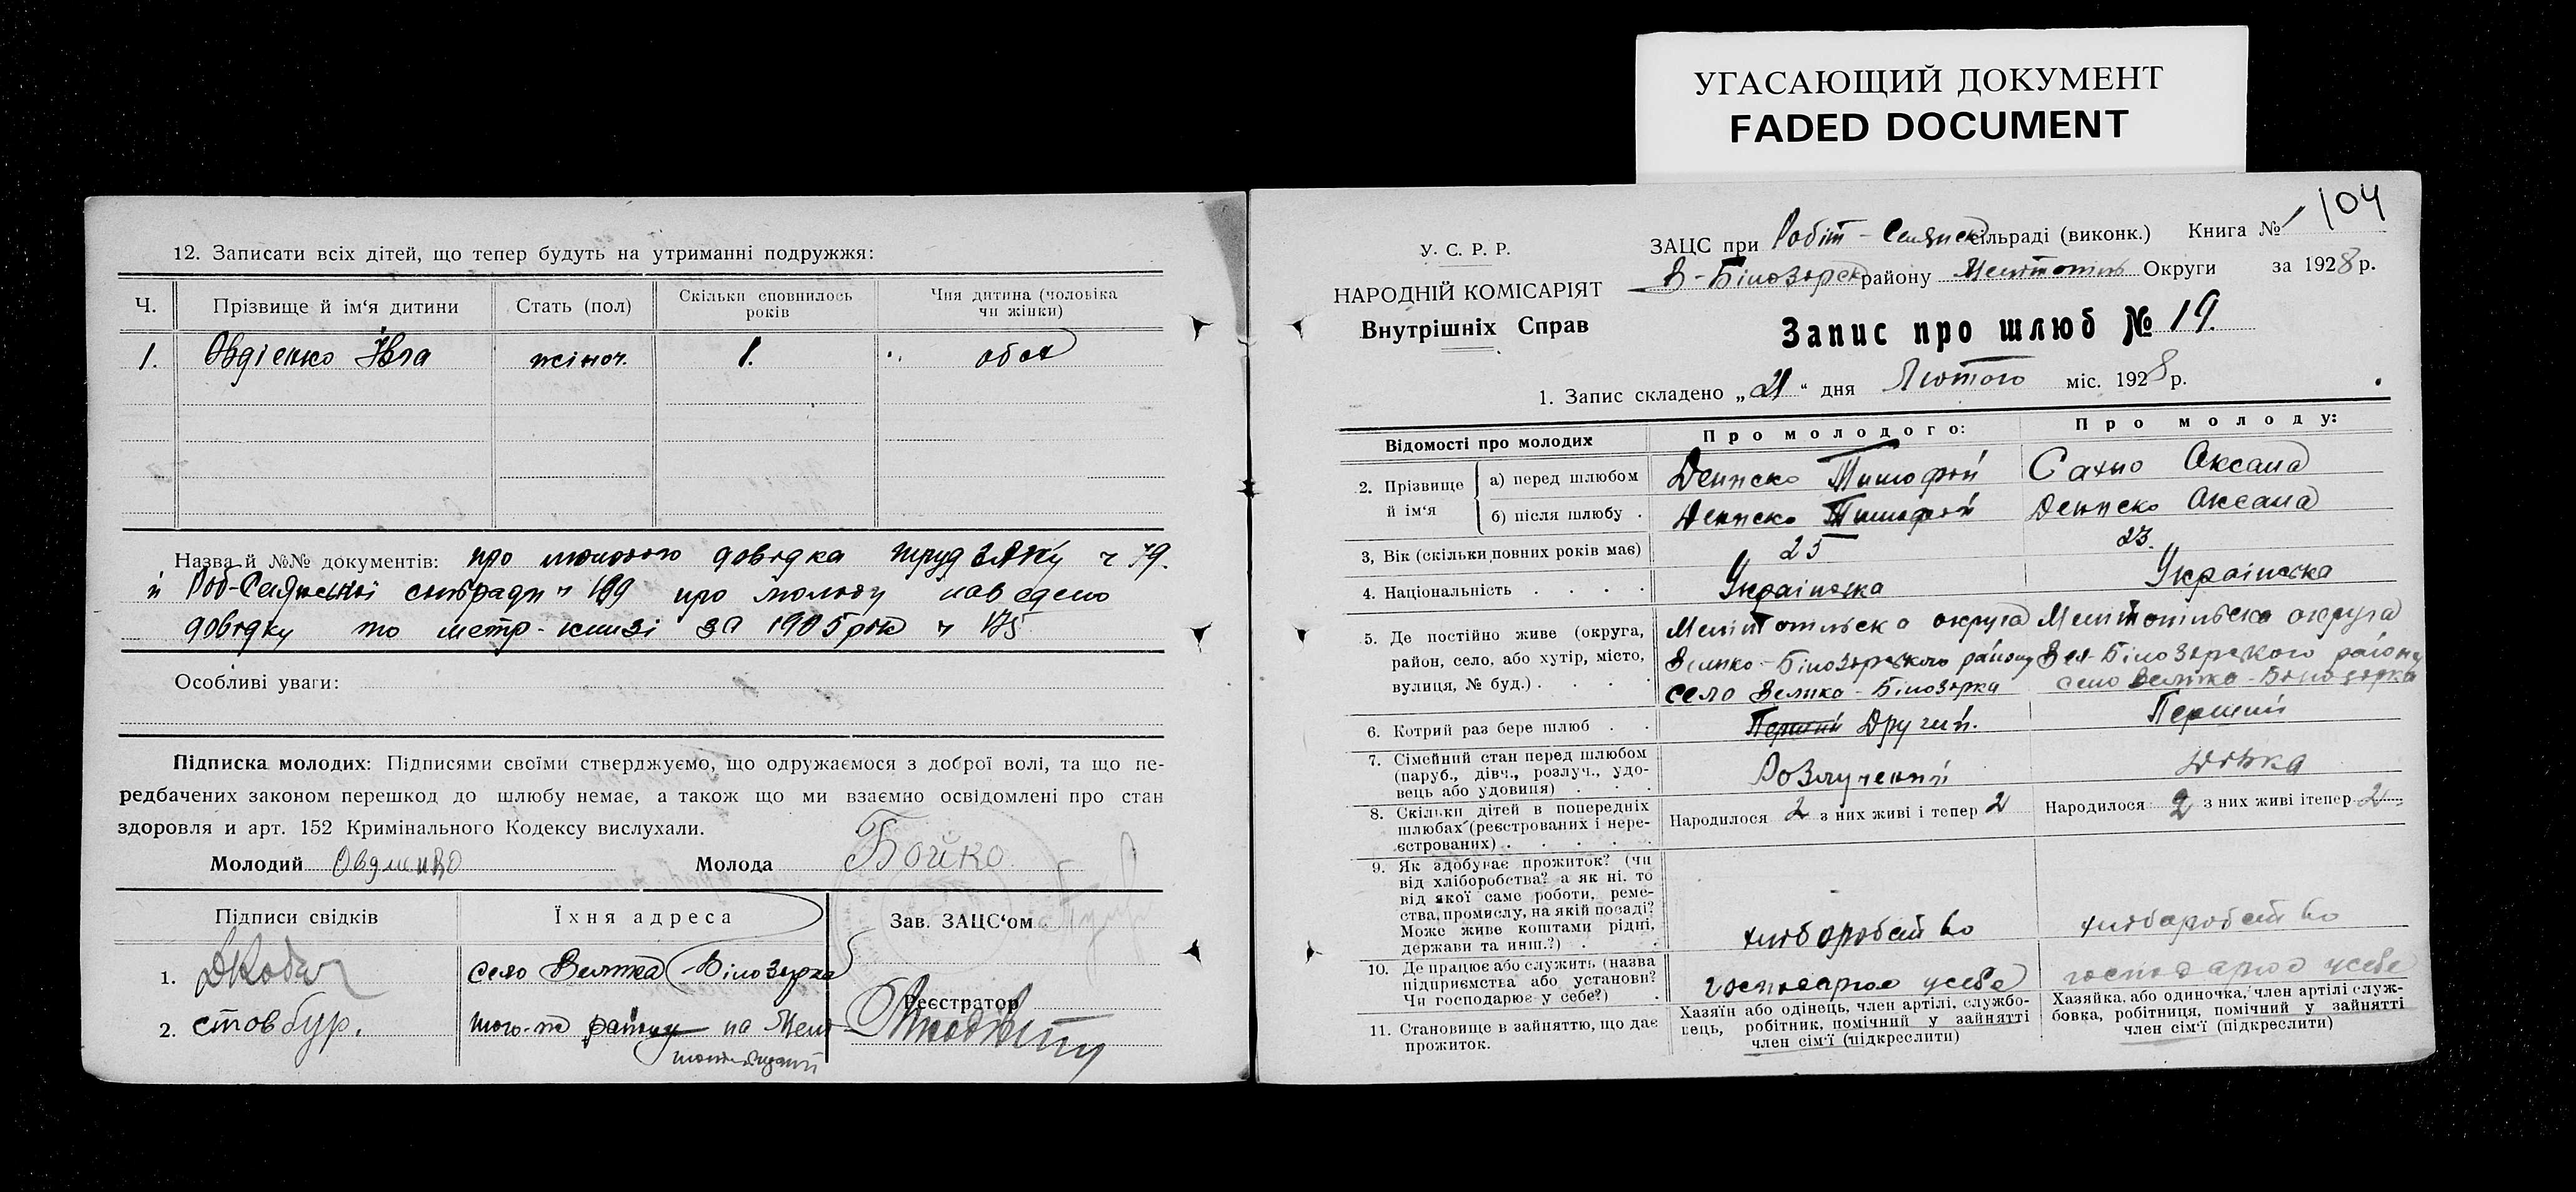 УГАСАЮЩИЙ ДОКУМЕНТ
FADED DOCUMENT
12. Записати всіх дітей, що тепер будуть на утриманні подружжя:
Ч. Прізвище й ім'я дитини Стать (пол) Скільки сповнилось років Чия дитина (чоловіка чи жінки)
1. Овдіенко Івга жіноч. 1. обох
Назва й №№ документів: про молодого довідка ч 79.
й Роб-Селянської сільради ч 199 про молоду
довідку по метр-книзі за 1905 рік ч 175
Особливі уваги:
Підписка молодих: Підписями своїми стверджуємо, що одружаємося з доброї волі, та що пе-
редбачених законом перешкод до шлюбу немає, а також що ми взаємно освідомлені про стан
здоровля и арт. 152 Кримінального Кодексу вислухали.
Молодий Молода Бойко
Підписи свідків Їхня адреса Зав. ЗАЦС'ом
1. село Велика-Білозерка
Реєстратор
2. стовбур. того-ж району на
104
У. С. Р. Р.
НАРОДНІЙ КОМІСАРІЯТ
Внутрішніх Справ
ЗАЦС при Робіт-Селянск сільраді (виконк.) Книга № 1
В-Білозерск району Мелітопіль Округи за 1928 р.
Запис про шлюб № 19.
1. Запис складено „21" дня Лютого міс. 1928 р.
Відомості про молодих Про молодого: Про молоду:
2. Прізвище й ім'я а) перед шлюбом Тимофій Сахно Оксана
б) після шлюбу . Тимофій Оксана
3, Вік (скільки повних років має) 25 23.
4. Національність . . . . Українська Українська
5. Де постійно живе (округа, Мелітопільска округа Мелітопільска округа
район, село, або хутір, місто, Велико-Білозерского району Вел-Білозерского району
вулиця, № буд.) . . . . село Велика-Білозерка село Велика-Білозерка
6. Котрий раз бере шлюб . . Перший Другий. Перший
7. Сімейний стан перед шлюбом
(паруб., дівч., розлуч., удо-
вець або удовиця) . . . Розлучений Дівка
8. Скільки дітей в попередніх
шлюбах (реєстрованих і нере-
єстрованих) . . . . . Народилося 2 з них живі і тепер 2 Народилося 2 з них живі і тепер 2
9. Як здобуває прожиток? (чи
від хліборобства? а як ні. то
від якої саме роботи, реме-
ства, промислу, на якій посаді?
Може живе коштами рідні,
держави та инш.?) . . хліборобство хліборобство
10. Де працює або служить (назва
підприємства або установи?
Чи господарює у себе?) . господарює у себе господарює у себе
11. Становище в зайняттю, що дає
прожиток.
Хазяїн або одінець, член артілі, службо-
вець, робітник, помічний у зайнятті
член сім'ї (підкреслити)
Хазяйка, або одиночка, член артілі служ-
бовка, робітниця, помічний у зайнятті
член сім'ї (підкреслити)